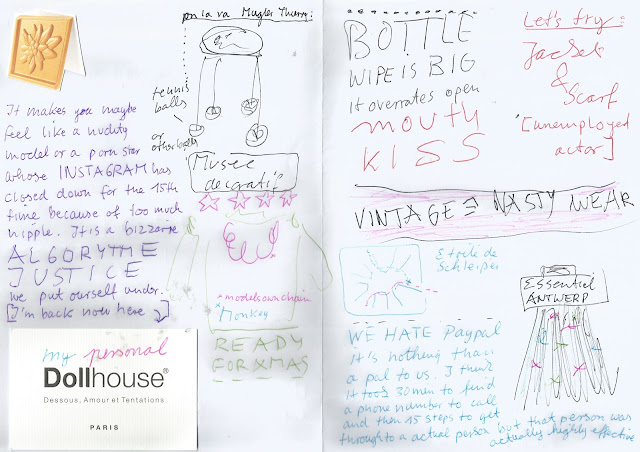 It makes you maybe
feel like a nudity
model or a porn star
whose INSTAGRAM has
closed down for the 15th
time because of too much
nipple. It is a bizzarre
ALGORYTME
JUSTICE
we put ourself under.
[I'm back now here
my personal
Dollhouse®
Dessous, Amour et Tentations
PARIS
on la va Mugler Thierry:
tennis
balls
or other balls
Musee
decoratif
models own chain
Monkey
READY
FOR XMAS
BOTTLE
WIPE IS BIG
it overrates open
mouth
KISS
Let's try:
Jacket
&
Scarf
[unemployed
actor]
VINTAGE = NASTY WEAR
Etoile de
Schleiper
Essentiel
ANTWERP
WE HATE Paypal
it is nothing than
a pal to us. I think
it took 30 min to find
a phone number to call
and then 15 steps to get
through to a actual person but that person was
actually highly effective